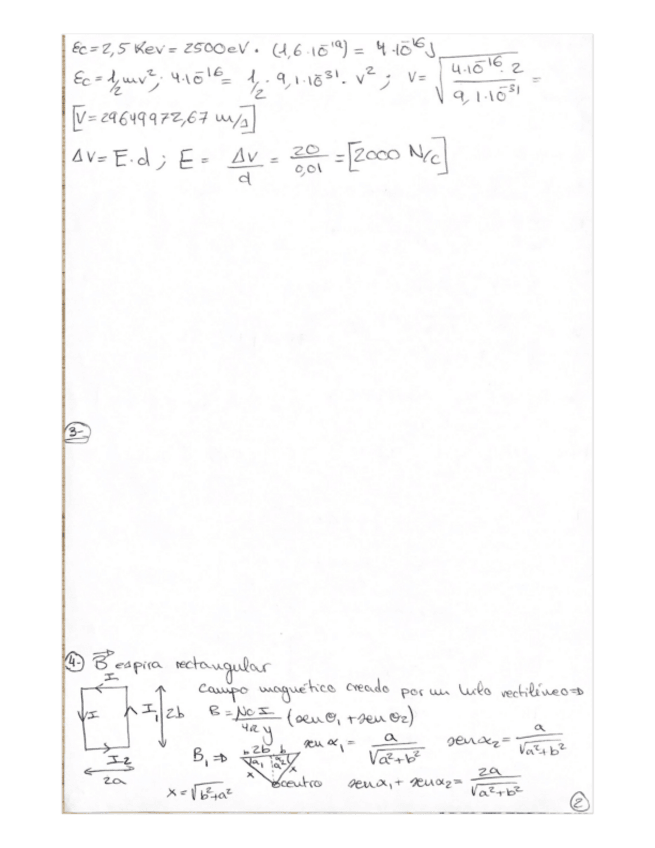 Ec = 2,5 Kev = 2500 eV · (1,6·10⁻¹⁹) = 4·10⁻¹⁶ J
Ec = 1/2 mv²; 4·10⁻¹⁶ = 1/2 · 9,1·10⁻³¹ · v² ; v = √(4·10⁻¹⁶·2 / 9,1·10⁻³¹) =
[V = 29649972,67 m/s]
ΔV = E·d ; E = ΔV/d = 20/0,01 = [2000 N/C]
3-
4-) B⃗ espira rectangular
Campo magnético creado por un hilo rectilíneo ⇒
I
I I₁ 2b B = μ₀ I / 4π y (sen θ₁ + sen θ₂)
I₂
2a
B₁ ⇒ 2b b sen α₁ = a/√(a²+b²) sen α₂ = a/√(a²+b²)
x x
x = √(b²+a²) centro sen α₁ + sen α₂ = 2a/√(a²+b²)
2